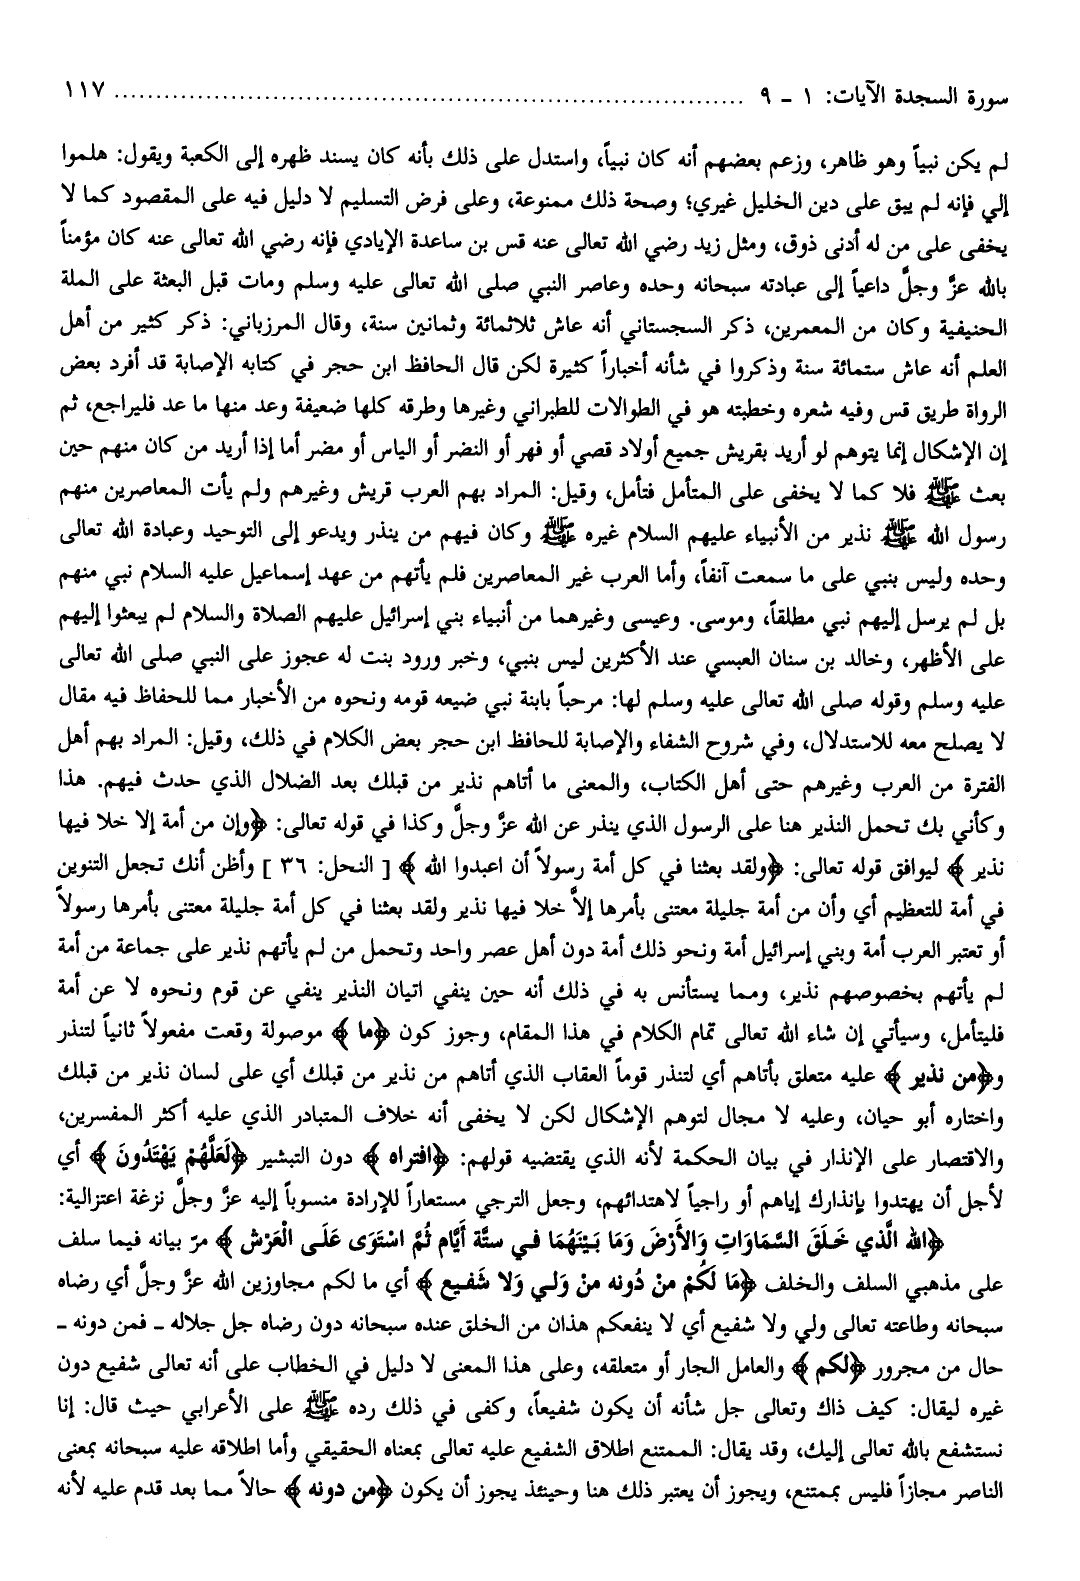 سورة السجدة الآيات: ١ - ٩ ........................................................................ ١١٧
لم يكن نبياً وهو ظاهر، وزعم بعضهم أنه كان نبياً، واستدل على ذلك بأنه كان يسند ظهره إلى الكعبة ويقول: هلموا
إلي فإنه لم يبق على دين الخليل غيري؛ وصحة ذلك ممنوعة، وعلى فرض التسليم لا دليل فيه على المقصود كما لا
يخفى على من له أدنى ذوق، ومثل زيد رضي الله تعالى عنه قس بن ساعدة الإيادي فإنه رضي الله تعالى عنه كان مؤمناً
بالله عزَّ وجلَّ داعياً إلى عبادته سبحانه وحده وعاصر النبي صلى الله تعالى عليه وسلم ومات قبل البعثة على الملة
الحنيفية وكان من المعمرين، ذكر السجستاني أنه عاش ثلاثمائة وثمانين سنة، وقال المرزباني: ذكر كثير من أهل
العلم أنه عاش ستمائة سنة وذكروا في شأنه أخباراً كثيرة لكن قال الحافظ ابن حجر في كتابه الإصابة قد أفرد بعض
الرواة طريق قس وفيه شعره وخطبته هو في الطوالات للطبراني وغيرها وطرقه كلها ضعيفة وعد منها ما عد فليراجع، ثم
إن الإشكال إنما يتوهم لو أريد بقريش جميع أولاد قصي أو فهر أو النضر أو الياس أو مضر أما إذا أريد من كان منهم حين
بعث ﷺ فلا كما لا يخفى على المتأمل فتأمل، وقيل: المراد بهم العرب قريش وغيرهم ولم يأت المعاصرين منهم
رسول الله ﷺ نذير من الأنبياء عليهم السلام غيره ﷺ وكان فيهم من ينذر ويدعو إلى التوحيد وعبادة الله تعالى
وحده وليس بنبي على ما سمعت آنفاً، وأما العرب غير المعاصرين فلم يأتهم من عهد إسماعيل عليه السلام نبي منهم
بل لم يرسل إليهم نبي مطلقاً، وموسى. وعيسى وغيرهما من أنبياء بني إسرائيل عليهم الصلاة والسلام لم يبعثوا إليهم
على الأظهر، وخالد بن سنان العبسي عند الأكثرين ليس بنبي، وخبر ورود بنت له عجوز على النبي صلى الله تعالى
عليه وسلم وقوله صلى الله تعالى عليه وسلم لها: مرحباً بابنة نبي ضيعه قومه ونحوه من الأخبار مما للحفاظ فيه مقال
لا يصلح معه للاستدلال، وفي شروح الشفاء والإصابة للحافظ ابن حجر بعض الكلام في ذلك، وقيل: المراد بهم أهل
الفترة من العرب وغيرهم حتى أهل الكتاب، والمعنى ما أتاهم نذير من قبلك بعد الضلال الذي حدث فيهم. هذا
وكأني بك تحمل النذير هنا على الرسول الذي ينذر عن الله عزَّ وجلَّ وكذا في قوله تعالى: ﴿وإن من أمة إلا خلا فيها
نذير﴾ ليوافق قوله تعالى: ﴿ولقد بعثنا في كل أمة رسولاً أن اعبدوا الله﴾ [ النحل: ٣٦ ] وأظن أنك تجعل التنوين
في أمة للتعظيم أي وأن من أمة جليلة معتنى بأمرها إلاَّ خلا فيها نذير ولقد بعثنا في كل أمة جليلة معتنى بأمرها رسولاً
أو تعتبر العرب أمة وبني إسرائيل أمة ونحو ذلك أمة دون أهل عصر واحد وتحمل من لم يأتهم نذير على جماعة من أمة
لم يأتهم بخصوصهم نذير، ومما يستأنس به في ذلك أنه حين ينفي اتيان النذير ينفي عن قوم ونحوه لا عن أمة
فليتأمل، وسيأتي إن شاء الله تعالى تمام الكلام في هذا المقام، وجوز كون ﴿ما﴾ موصولة وقعت مفعولاً ثانياً لتنذر
و﴿من نذير﴾ عليه متعلق بأتاهم أي لتنذر قوماً العقاب الذي أتاهم من نذير من قبلك أي على لسان نذير من قبلك
واختاره أبو حيان، وعليه لا مجال لتوهم الإشكال لكن لا يخفى أنه خلاف المتبادر الذي عليه أكثر المفسرين،
والاقتصار على الإنذار في بيان الحكمة لأنه الذي يقتضيه قولهم: ﴿افتراه﴾ دون التبشير ﴿لَعَلَّهُمْ يَهْتَدُونَ﴾ أي
لأجل أن يهتدوا بإنذارك إياهم أو راجياً لاهتدائهم، وجعل الترجي مستعاراً للإرادة منسوباً إليه عزَّ وجلَّ نزغة اعتزالية:
﴿الله الَّذي خَلَقَ السَّمَاوَاتِ وَالأَرْضَ وَمَا بَيْنَهُمَا في ستَّة أَيَّام ثُمَّ اسْتَوَى عَلَى الْعَرْش﴾ مرّ بيانه فيما سلف
على مذهبي السلف والخلف ﴿مَا لَكُمْ منْ دُونه منْ وَلي وَلا شَفيع﴾ أي ما لكم مجاوزين الله عزَّ وجلَّ أي رضاه
سبحانه وطاعته تعالى ولي ولا شفيع أي لا ينفعكم هذان من الخلق عنده سبحانه دون رضاه جل جلاله - فمن دونه -
حال من مجرور ﴿لكم﴾ والعامل الجار أو متعلقه، وعلى هذا المعنى لا دليل في الخطاب على أنه تعالى شفيع دون
غيره ليقال: كيف ذاك وتعالى جل شأنه أن يكون شفيعاً، وكفى في ذلك رده ﷺ على الأعرابي حيث قال: إنا
نستشفع بالله تعالى إليك، وقد يقال: الممتنع اطلاق الشفيع عليه تعالى بمعناه الحقيقي وأما اطلاقه عليه سبحانه بمعنى
الناصر مجازاً فليس بممتنع، ويجوز أن يعتبر ذلك هنا وحينئذ يجوز أن يكون ﴿من دونه﴾ حالاً مما بعد قدم عليه لأنه